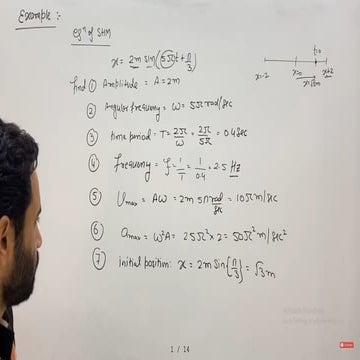 Example :-
eqⁿ of SHM
x = 2m sin(5πt + π/3)
t=0
x=-2 x=0 x=√3m x=+2
find ① Amplitude = A = 2m
② Angular frequency = ω = 5π rad/sec
③ time period = T = 2π/ω = 2π/5π = 0.4 sec
④ frequency = f = 1/T = 1/0.4 = 2.5 Hz
⑤ Umax = Aω = 2m 5π rad/sec = 10π m/sec
⑥ amax = ω²A = 25π² × 2 = 50π² m/sec²
⑦ initial position: x = 2m sin{π/3} = √3 m
1 / 14